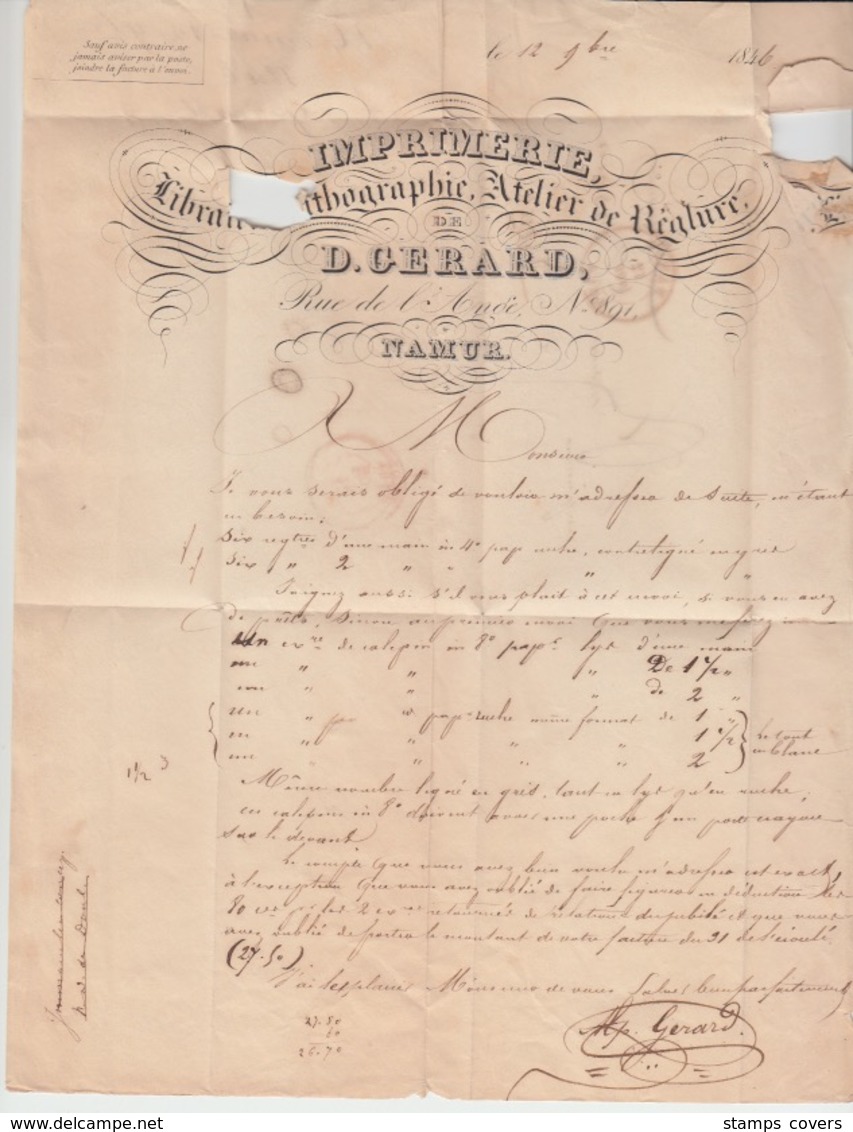 Sauf avis contraire, ne
jamais aviser par la poste,
joindre la facture à l'envoi.
le 12 9bre 1846
IMPRIMERIE,
Librai ithographie, Atelier de Réglure,
DE
D. GERARD,
Rue de l'Ange, No. 891,
NAMUR.
A Monsieur
Je vous serais obligé de vouloir m'adresser de suite, en étant
en besoin:
Six regtres d'une main in 4o pap ruche, contreligné en gris
Six " 2 " " " "
Joignez aussi s'il vous plait à cet envoi, si vous en avez
de prêts, sinon au premier envoi que vous me ferez
un exre de calepin in 8o papr lys d'une main
un " " " De 1 1/2 "
un " " " de 2 "
un " " pap. ruche même format de 1 "
un " " " " 1 1/2
un " " " " 2
le tout
en blanc
1 1/2 3
Même nombre ligné en gris, tant en lys qu'en ruche,
ces calepins in 8o doivent avoir une poche & un porte crayon
sur le devant.
Le compte que vous avez bien voulu m'adresser est exact,
à l'exception que vous avez oublié de faire figurer en déduction les
80 ces les 2 exres retournés de et que vous
avez oublié de porter le montant de notre facture du 31 de l'écoulé
(27.50)
J'ai le plaisir Monsieur de vous saluer bien parfaitement
27.50
80
26.70
Gerard
stamps covers